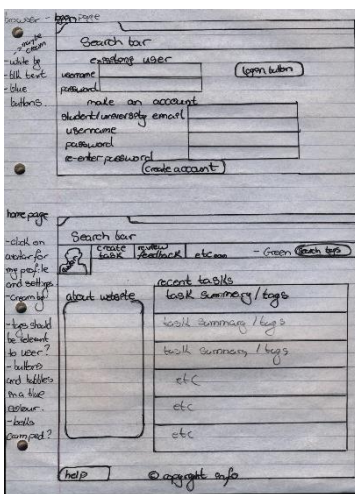 browser - logon page
Search bar
- maybe cream
- white bg
- blk text
- blue buttons.
existing user
username
password
logon button
make an account
student/university email
username
password
re-enter password
create account
home page
Search bar
- click on avatar for my profile and settings
- cream bg
- tags should be relevant to user?
- buttons and bubbles in a blue colour.
cramped?
create task
review feedback
etc
- Green
Search tags
about website
recent tasks
task summary / tags
task summary / tags
task summary / tags
etc
etc
etc
help
© copyright info